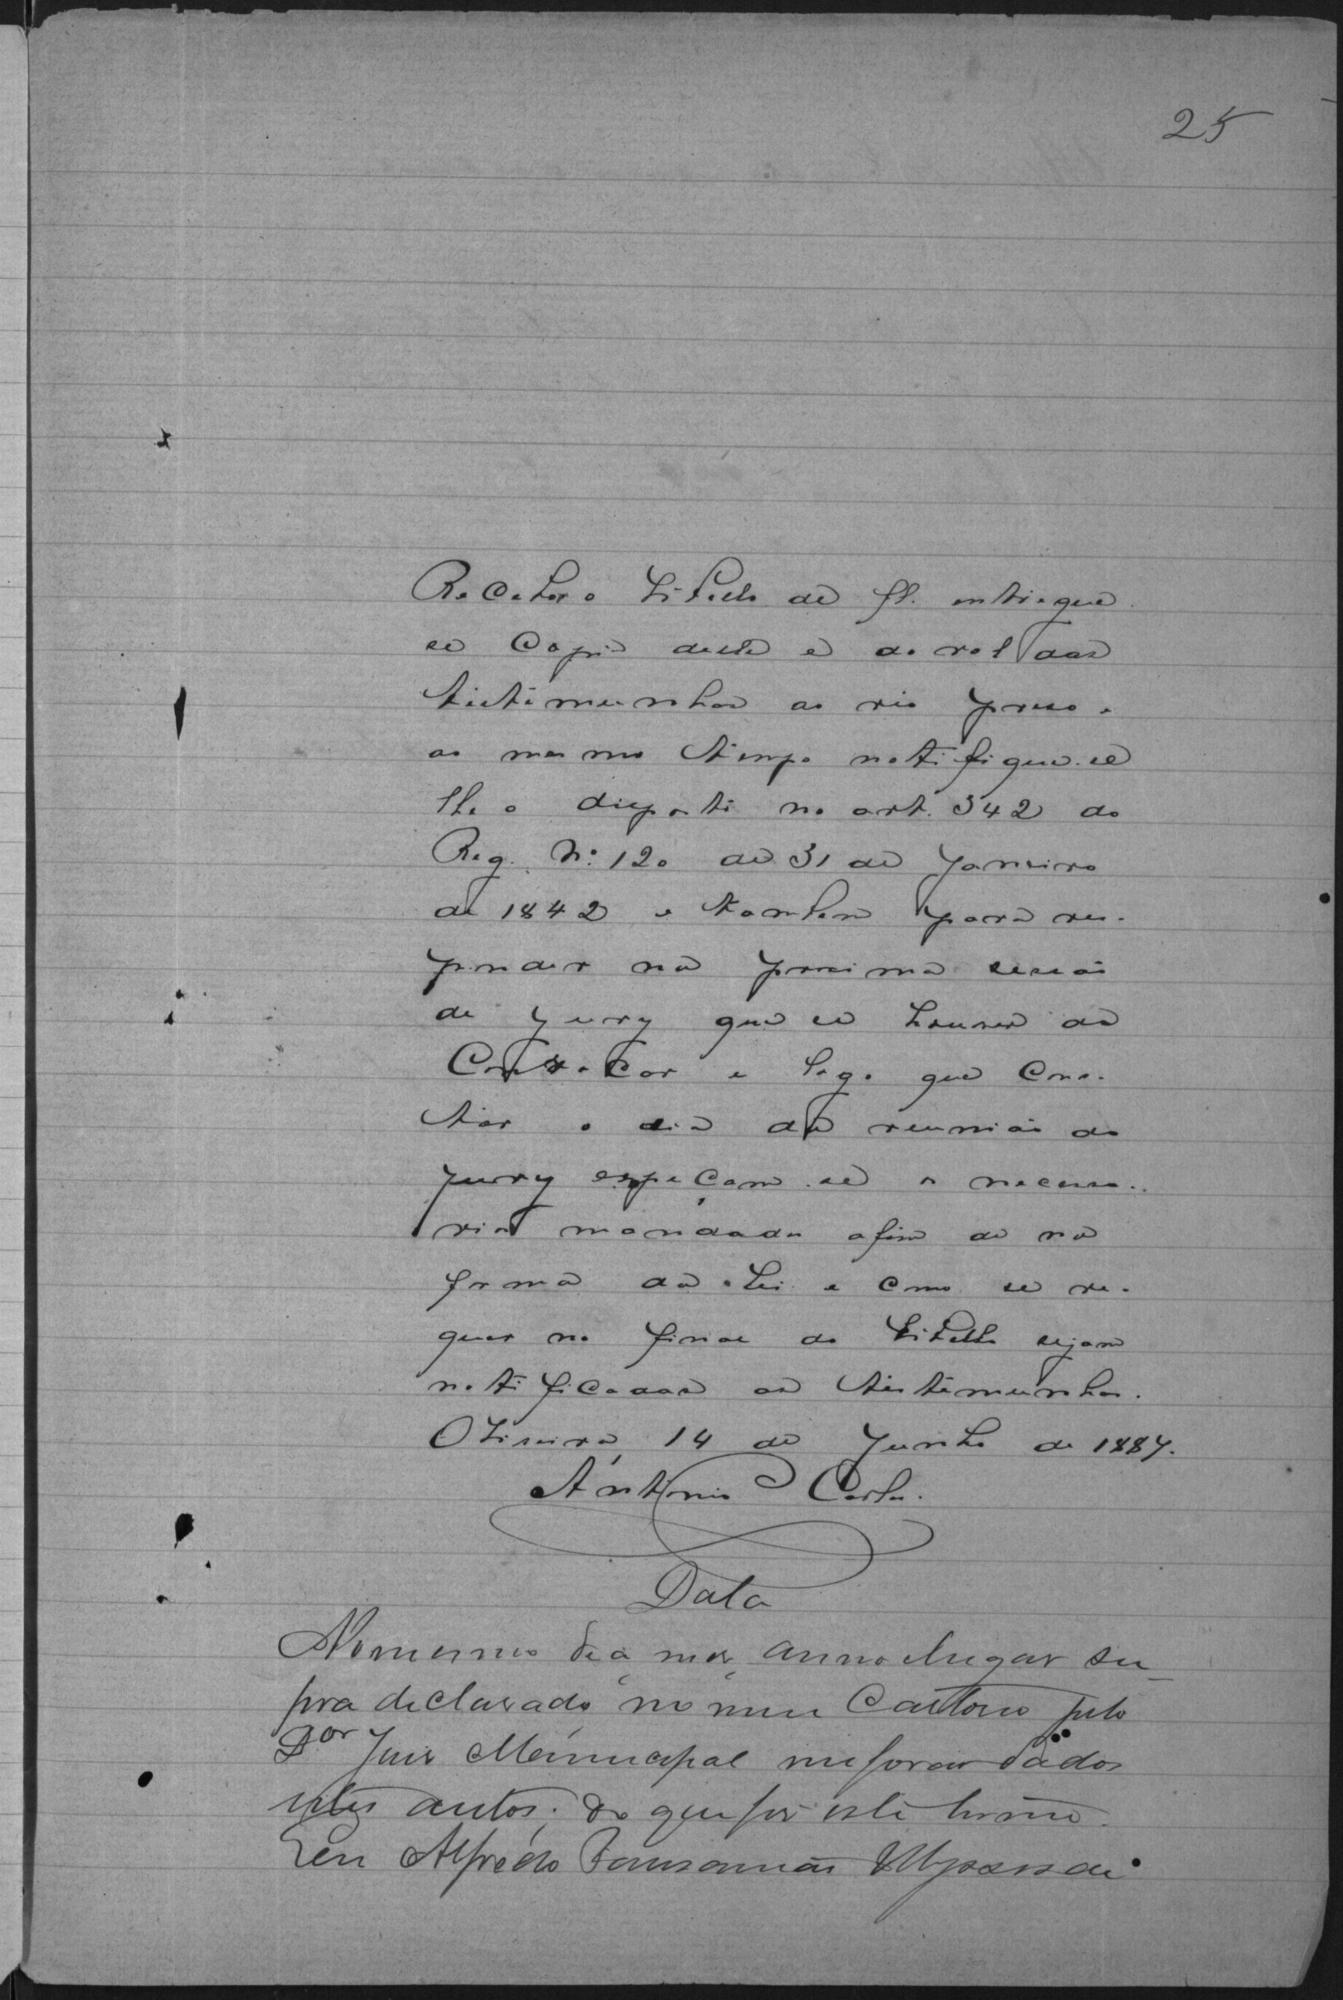 25
Recebo o libello de fl. entregue
se Copia deste e do rol das
testemunhas ao reo preso e
ao mesmo tempo notifique-se
lhe o disposto no art. 342 do
Reg. Nº: 120 de 31 de Janeiro
de 1842 e tambem para res-
ponder na proxima sessão
do jury que se houver de
Convocar e logo que Cons-
tar o dia da reunião do
jury expeçam-se os necessa-
rios mandados afim de na
forma da Lei e como se re-
quer no final do libello sejam
notificadas as testemunhas.
Oliveira, 14 de Junho de 1887.
Antonio Carlos.
Data
No mesmo dia, mes, anno e lugar su-
pra declarado no meu Cartorio pelo
Dor Juis Municipal me forão dados
estes autos; do que fis este termo.
Eu Alfredo Pausanias